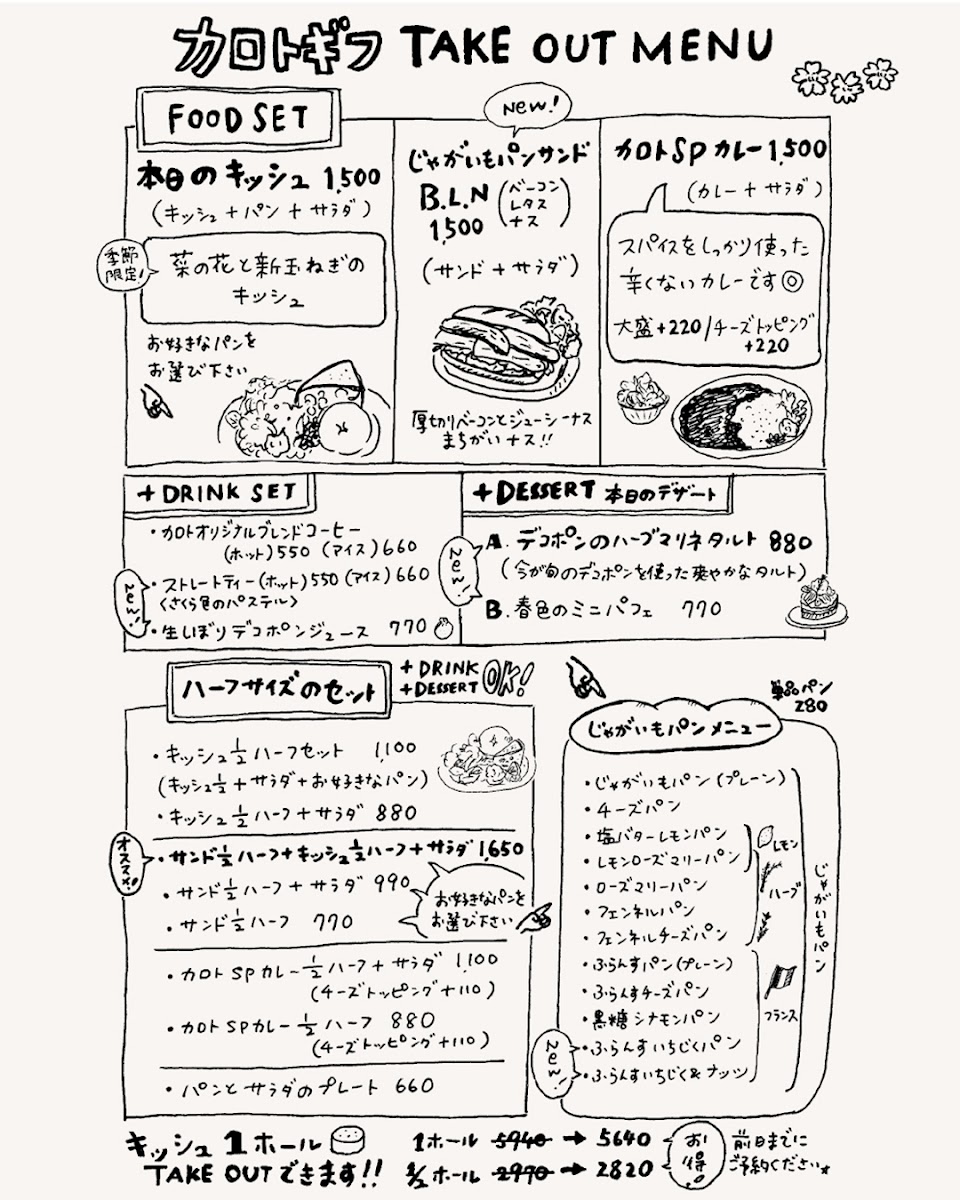 カロトギフ TAKE OUT MENU
FOOD SET
本日のキッシュ 1,500
(キッシュ+パン+サラダ)
季節
限定!
菜の花と新玉ねぎの
キッシュ
お好きなパンを
お選び下さい
New!
じゃがいもパンサンド
B.L.N
1,500
(ベーコン
レタス
ナス)
(サンド+サラダ)
厚切りベーコンとジューシーナス
まちがいナス!!
カロトSPカレー1,500
(カレー+サラダ)
スパイスをしっかり使った
辛くないカレーです◎
大盛+220/チーズトッピング
+220
+DRINK SET
・カロトオリジナルブレンドコーヒー
(ホット)550 (アイス)660
New!
・ストレートティー(ホット)550(アイス)660
<さくら色のパステル>
・生しぼりデコポンジュース 770
+DESSERT 本日のデザート
New!
A. デコポンのハーブマリネタルト 880
(今が旬のデコポンを使った爽やかなタルト)
B. 春色のミニパフェ 770
ハーフサイズのセット
+DRINK
+DESSERT OK!
・キッシュ1/2ハーフセット 1,100
(キッシュ1/2+サラダ+お好きなパン)
・キッシュ1/2ハーフ+サラダ 880
オススメ!
・サンド1/2ハーフ+キッシュ1/2ハーフ+サラダ 1,650
・サンド1/2ハーフ+サラダ 990
・サンド1/2ハーフ 770
お好きなパンを
お選び下さい
・カロトSPカレー1/2ハーフ+サラダ 1,100
(チーズトッピング+110)
・カロトSPカレー1/2ハーフ 880
(チーズトッピング+110)
・パンとサラダのプレート 660
単品パン
280
じゃがいもパンメニュー
・じゃがいもパン(プレーン)
・チーズパン
・塩バターレモンパン
・レモンローズマリーパン
・ローズマリーパン
・フェンネルパン
・フェンネルチーズパン
・ふらんすパン(プレーン)
・ふらんすチーズパン
・黒糖シナモンパン
New!
・ふらんすいちじくパン
・ふらんすいちじく&ナッツ
レモン
ハーブ
フランス
じゃがいもパン
キッシュ1ホール
TAKE OUTできます!!
1ホール 5940 → 5640
1/2ホール 2970 → 2820
お得!
前日までに
ご予約ください*